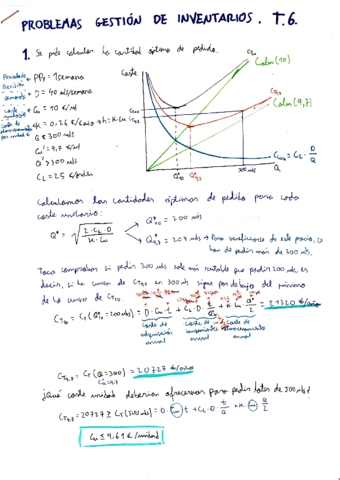 PROBLEMAS GESTIÓN DE INVENTARIOS. T.6.
1. Se pide calcular la cantidad óptima de pedido.
PPr = 1 semana
D = 40 uds/semana
Cu = 10 €/ud
K = 0,26 €/€año → h = K·Cu
Q < 300 uds
Cu' = 9,7 €/ud
Q' > 300 uds
CL = 25 €/orden
Coste
Calm (10)
Calm (9,7)
300 uds
Q
Calculamos las cantidades óptimas de pedido para cada
coste unitario:
Q* = √(2·CL·D / K·Cu)
Q*10 = 200 uds
Q*9,7 = 204 uds → Para beneficiarse de este precio,
han de pedir más de 300 uds.
Toca comprobar si pedir 300 uds sale más rentable que pedir 200 uds, es
decir, si la curva de CT9,7 en 300 uds sigue por debajo del mínimo
de la curva de CT10.
CT10 = CT(Q*=200 uds) = D·Cu·t + CL·D t/Q* + K·Cu Q*/2 = 21320 €/año
Coste de adquisición anual
Coste de lanzamiento anual
Coste de almacenamiento anual
CT9,7 = CT(Q=300) = 20727 €/año
Cu=9,7
¿Qué coste unidad deberían ofrecernos para pedir lotes de 500 uds?
CT9,7 = 20727 ≥ CT(500 uds) = D·Cu·t + CL·D t/Q + K·Cu Q/2
Cu ≤ 9,61 €/unidad